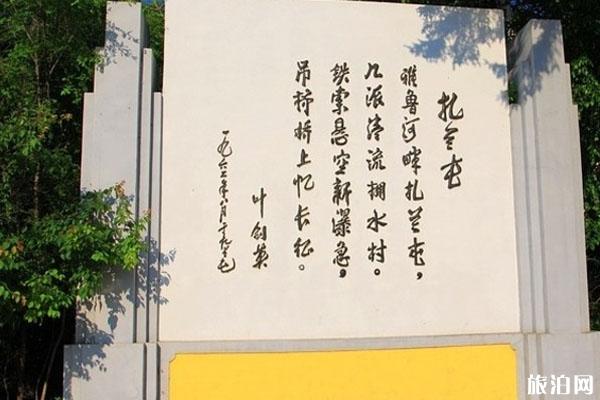 扎兰屯
雅鲁河畔扎兰屯,
几派清流拥水村。
铁索悬空新瀑急,
吊桥桥上忆长征。
叶剑英
一九六三年八月十九
旅泊网